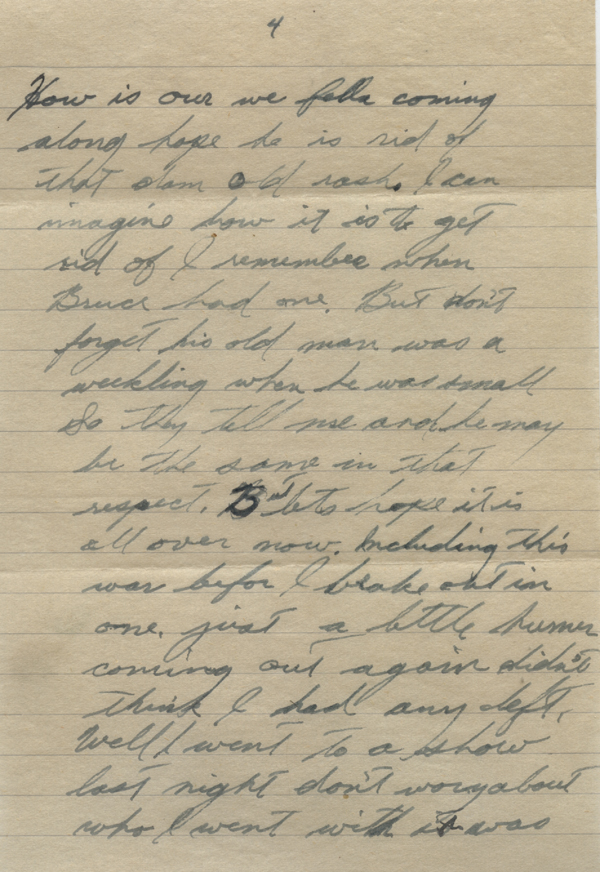 4
How is our we fella coming
along hope he is rid of
that dam old rash. I can
imagine how it is to get
rid of I remember when
Bruce had one. But don't
forget his old man was a
weekling when he was small
So they tell me and he may
be the same in that
respect. But lets hope it is
all over now. Including this
war befor I brake out in
one. just a little humer
coming out again didn't
think I had any left.
Well I went to a show
last night don't worry about
who I went with it was